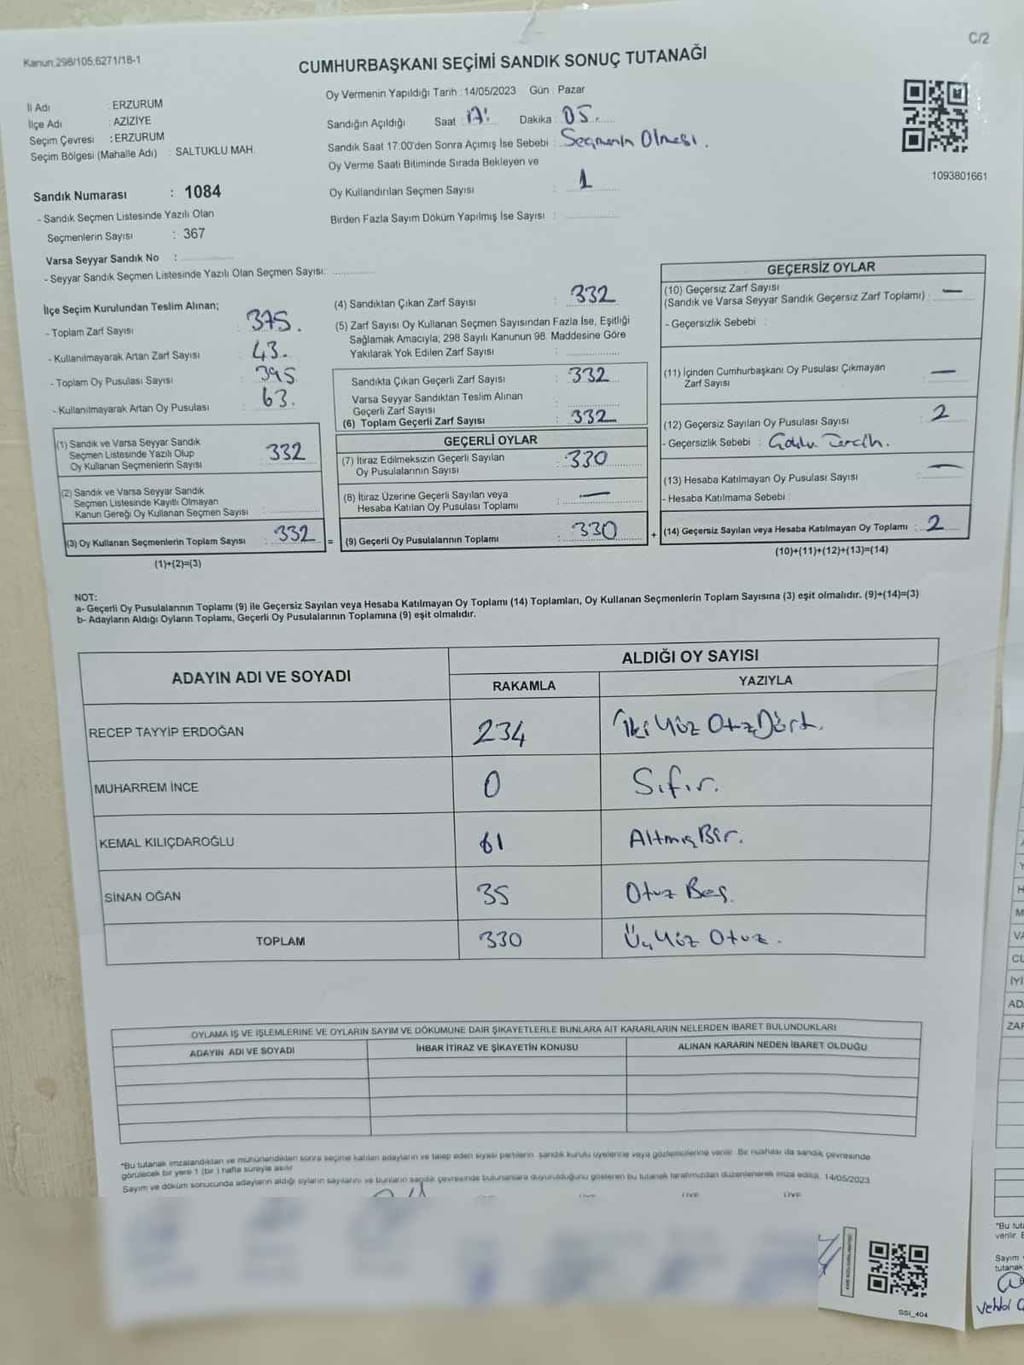 Kanun:298/105;6271/18-1
C/2
CUMHURBAŞKANI SEÇİMİ SANDIK SONUÇ TUTANAĞI
İl Adı : ERZURUM
İlçe Adı : AZİZİYE
Seçim Çevresi : ERZURUM
Seçim Bölgesi (Mahalle Adı) : SALTUKLU MAH.
Sandık Numarası : 1084
- Sandık Seçmen Listesinde Yazılı Olan
Seçmenlerin Sayısı : 367
Varsa Seyyar Sandık No :
- Seyyar Sandık Seçmen Listesinde Yazılı Olan Seçmen Sayısı:
Oy Vermenin Yapıldığı Tarih :14/05/2023 Gün : Pazar
Sandığın Açıldığı Saat : 17: Dakika : 05
Sandık Saat 17:00'den Sonra Açımış İse Sebebi : Seçmenin Olması.
Oy Verme Saati Bitiminde Sırada Bekleyen ve
Oy Kullandırılan Seçmen Sayısı : 1
Birden Fazla Sayım Döküm Yapılmış İse Sayısı :
1093801661
İlçe Seçim Kurulundan Teslim Alınan;
- Toplam Zarf Sayısı : 375.
- Kullanılmayarak Artan Zarf Sayısı : 43.
- Toplam Oy Pusulası Sayısı : 395
- Kullanılmayarak Artan Oy Pusulası : 63.
(1) Sandık ve Varsa Seyyar Sandık
Seçmen Listesinde Yazılı Olup
Oy Kullanan Seçmenlerin Sayısı : 332
(2) Sandık ve Varsa Seyyar Sandık
Seçmen Listesinde Kayıtlı Olmayan
Kanun Gereği Oy Kullanan Seçmen Sayısı :
(3) Oy Kullanan Seçmenlerin Toplam Sayısı : 332 =
(1)+(2)=(3)
(4) Sandıktan Çıkan Zarf Sayısı : 332
(5) Zarf Sayısı Oy Kullanan Seçmen Sayısından Fazla İse, Eşitliği
Sağlamak Amacıyla; 298 Sayılı Kanunun 98. Maddesine Göre
Yakılarak Yok Edilen Zarf Sayısı :
Sandıkta Çıkan Geçerli Zarf Sayısı : 332
Varsa Seyyar Sandıktan Teslim Alınan
Geçerli Zarf Sayısı :
(6) Toplam Geçerli Zarf Sayısı : 332
GEÇERLİ OYLAR
(7) İtiraz Edilmeksizin Geçerli Sayılan
Oy Pusulalarının Sayısı : 330
(8) İtiraz Üzerine Geçerli Sayılan veya
Hesaba Katılan Oy Pusulası Toplamı : —
(9) Geçerli Oy Pusulalarının Toplamı : 330 +
GEÇERSİZ OYLAR
(10) Geçersiz Zarf Sayısı
(Sandık ve Varsa Seyyar Sandık Geçersiz Zarf Toplamı) : —
- Geçersizlik Sebebi :
(11) İçinden Cumhurbaşkanı Oy Pusulası Çıkmayan
Zarf Sayısı : —
(12) Geçersiz Sayılan Oy Pusulası Sayısı : 2
- Geçersizlik Sebebi : Çoklu Tercih.
(13) Hesaba Katılmayan Oy Pusulası Sayısı : —
- Hesaba Katılmama Sebebi :
(14) Geçersiz Sayılan veya Hesaba Katılmayan Oy Toplamı : 2
(10)+(11)+(12)+(13)=(14)
NOT:
a- Geçerli Oy Pusulalarının Toplamı (9) ile Geçersiz Sayılan veya Hesaba Katılmayan Oy Toplamı (14) Toplamları, Oy Kullanan Seçmenlerin Toplam Sayısına (3) eşit olmalıdır. (9)+(14)=(3)
b- Adayların Aldığı Oyların Toplamı, Geçerli Oy Pusulalarının Toplamına (9) eşit olmalıdır.
ADAYIN ADI VE SOYADI
ALDIĞI OY SAYISI
RAKAMLA YAZIYLA
RECEP TAYYİP ERDOĞAN 234 İki Yüz Otuz Dört.
MUHARREM İNCE 0 Sıfır.
KEMAL KILIÇDAROĞLU 61 Altmış Bir.
SİNAN OĞAN 35 Otuz Beş.
TOPLAM 330 Üç Yüz Otuz.
OYLAMA İŞ VE İŞLEMLERİNE VE OYLARIN SAYIM VE DÖKÜMÜNE DAİR ŞİKAYETLERLE BUNLARA AİT KARARLARIN NELERDEN İBARET BULUNDUKLARI
ADAYIN ADI VE SOYADI İHBAR İTİRAZ VE ŞİKAYETİN KONUSU ALINAN KARARIN NEDEN İBARET OLDUĞU
*Bu tutanak imzalandıktan ve mühürlendikten sonra seçime katılan adayların ve talep eden siyasi partilerin sandık kurulu üyelerine veya gözlemcilerine verilir. Bir nüshası da sandık çevresinde
görülecek bir yere 1 (bir) hafta süreyle asılır.
Sayım ve döküm sonucunda adayların aldığı oyların sayılarını ve bunların sandık çevresinde bulunanlara duyurulduğunu gösteren bu tutanak tarafımızdan düzenlenerek imza edildi. 14/05/2023
SSİ_404